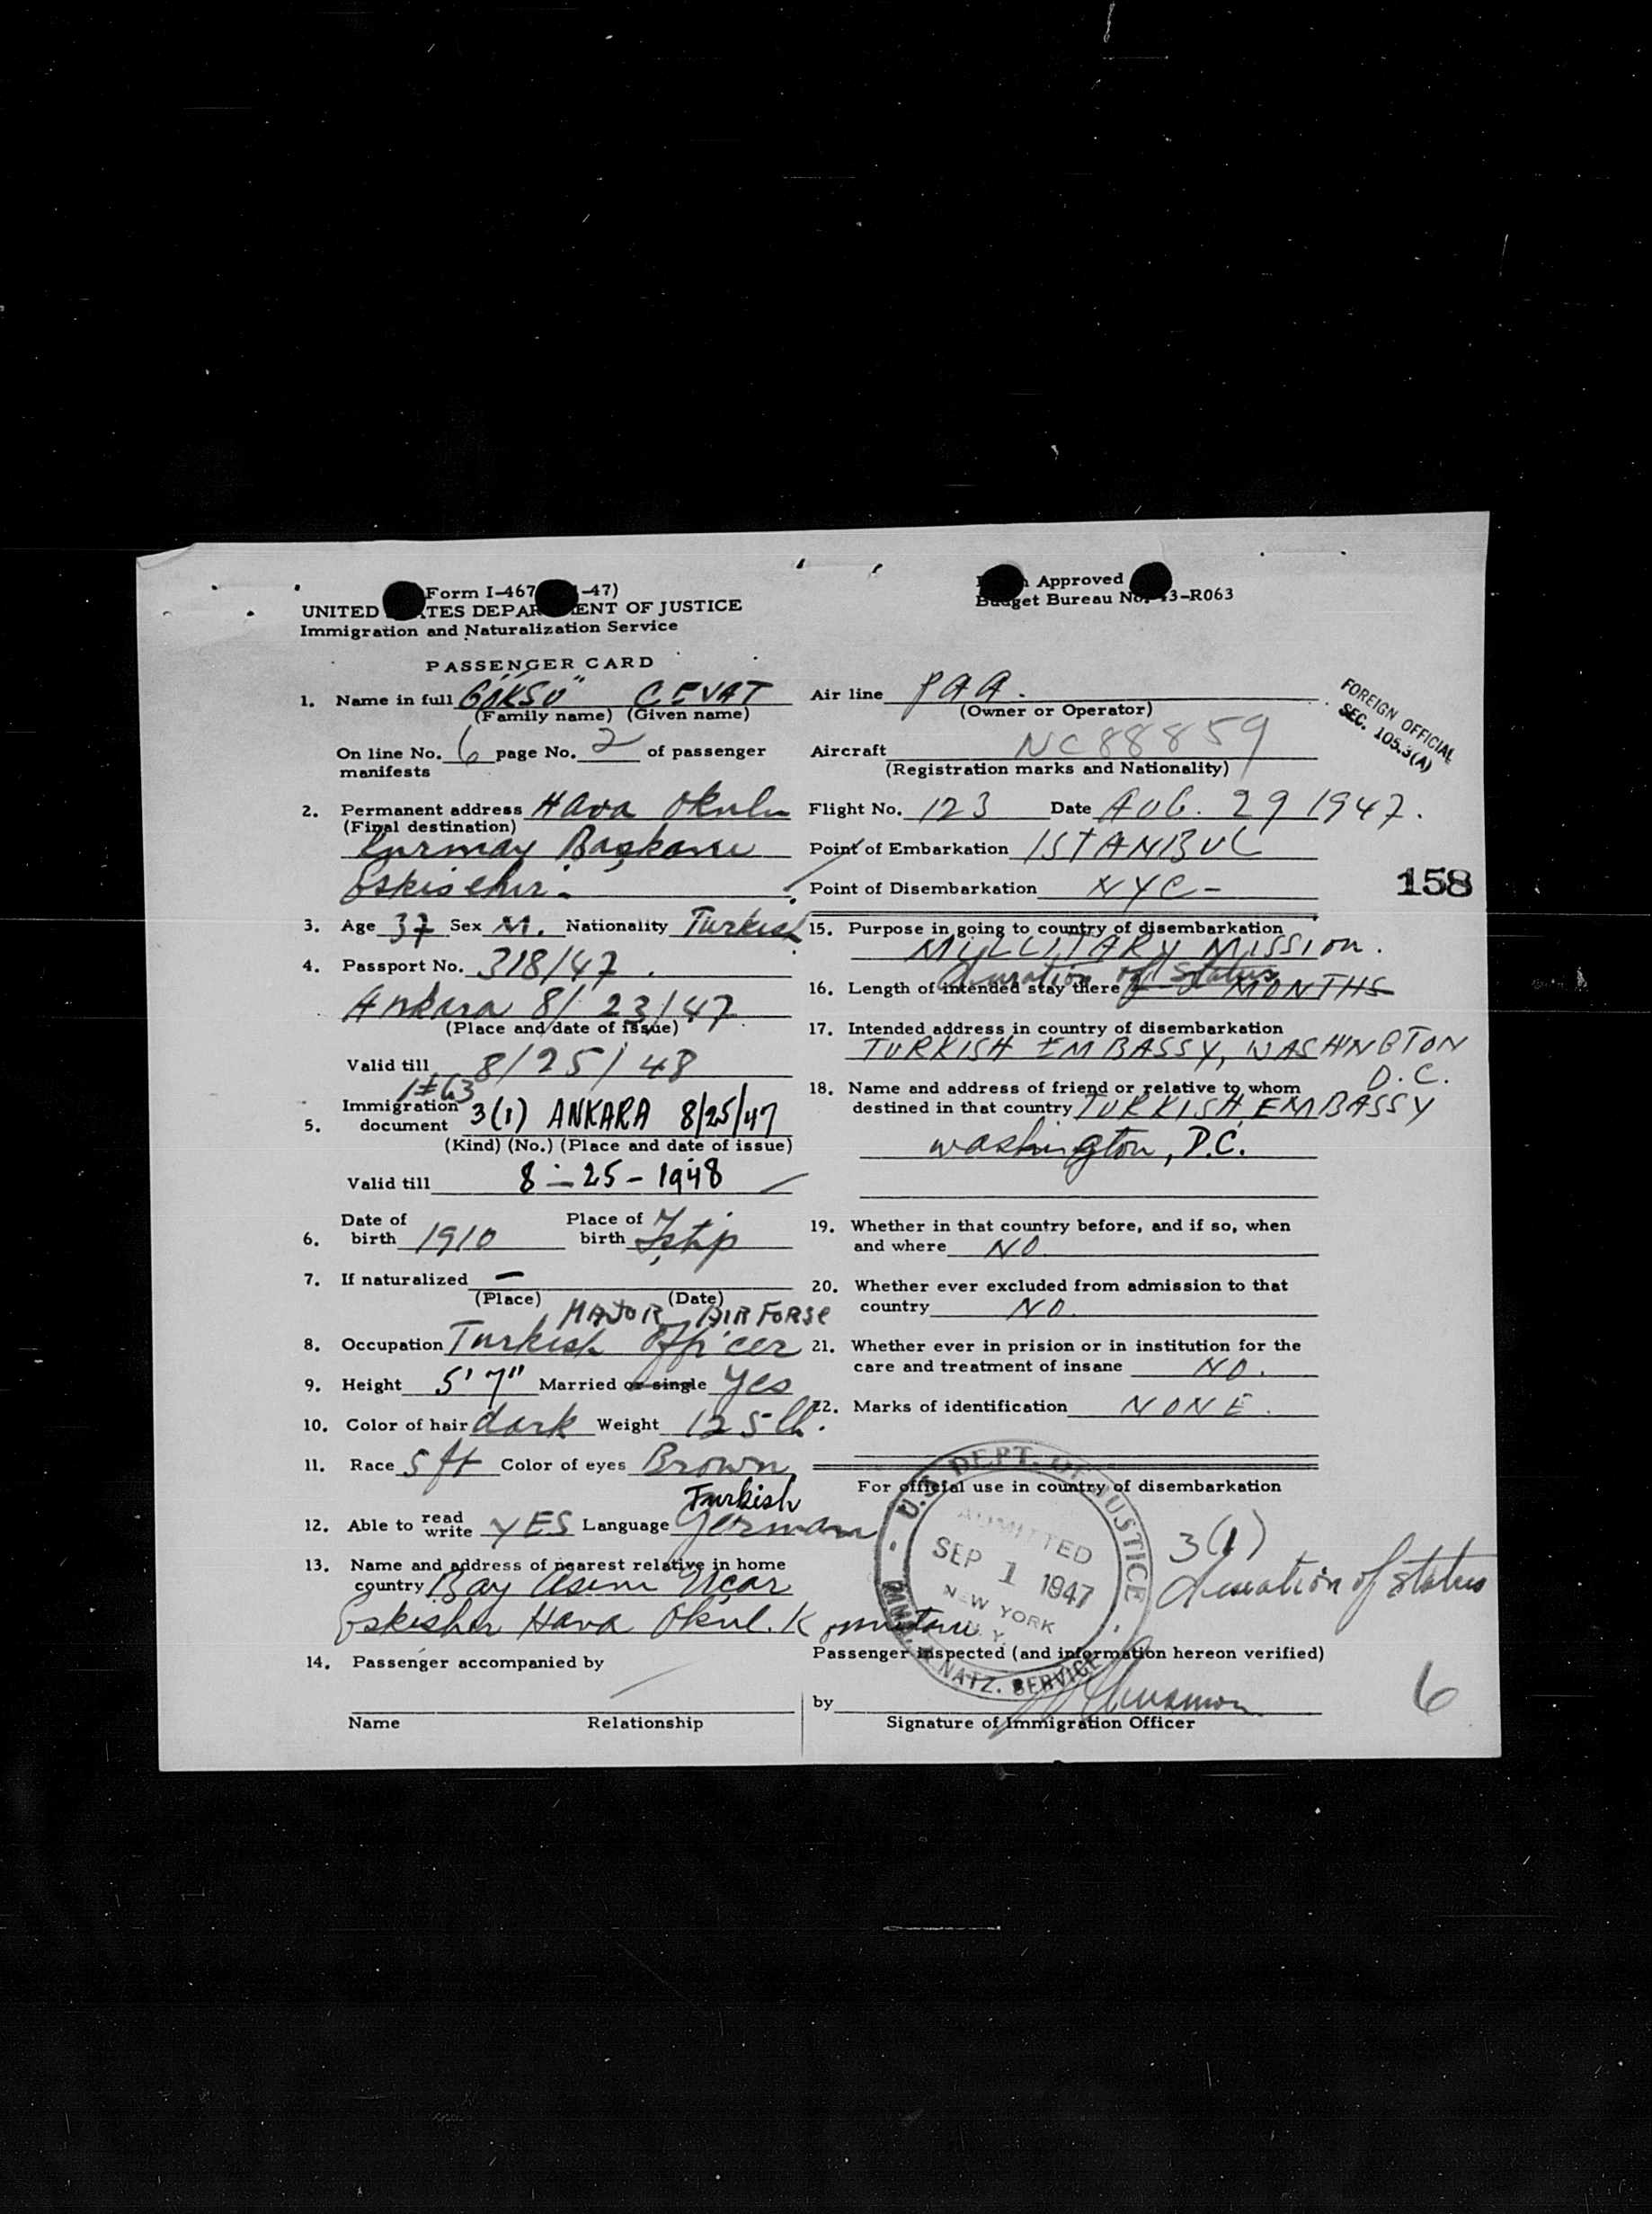 Form I-467 -47)
UNITED TES DEPAR ENT OF JUSTICE
Immigration and Naturalization Service
PASSENGER CARD
1. Name in full GÖKSÜ CEVAT
(Family name) (Given name)
On line No. 6 page No. 2 of passenger
manifests
2. Permanent address Hava Okulu
(Final destination)
Kurmay Başkanı
Eskisehir-
3. Age 37 Sex M. Nationality Turkish
4. Passport No. 318/47.
Ankara 8/23/47
(Place and date of issue)
Valid till 8/25/48
Immigration
5. document 3(1) ANKARA 8/25/47
(Kind) (No.) (Place and date of issue)
Valid till 8-25-1948
Date of Place of
6. birth 1910 birth İştip
7. If naturalized —
(Place) (Date)
MAJOR AIR FORSE
8. Occupation Turkish Officer
9. Height 5'7" Married or single Yes
10. Color of hair dark Weight 125 lb.
11. Race 5 ft Color of eyes Brown
Turkish
12. Able to read write YES Language German
13. Name and address of nearest relative in home
country Bay Asım Uçar
Eskisehir Hava Okul. Komutanı
14. Passenger accompanied by
Name Relationship
Approved
Budget Bureau No. 43-R063
Air line PAA.
(Owner or Operator)
Aircraft NC88859
(Registration marks and Nationality)
FOREIGN OFFICIAL
SEC. 105.3(A)
Flight No. 123 Date AUG. 29 1947.
Point of Embarkation ISTANBUL
Point of Disembarkation NYC-
158
15. Purpose in going to country of disembarkation
MILLITARY MISSION.
duration of status
16. Length of intended stay there MONTHS
17. Intended address in country of disembarkation
TURKISH EMBASSY, WASHINGTON
D.C.
18. Name and address of friend or relative to whom
destined in that country TURKISH EMBASSY
washington, D.C.
19. Whether in that country before, and if so, when
and where NO
20. Whether ever excluded from admission to that
country NO.
21. Whether ever in prision or in institution for the
care and treatment of insane NO.
22. Marks of identification NONE.
For official use in country of disembarkation
U.S. DEPT. OF JUSTICE
ADMITTED
SEP 1 1947
NEW YORK
N.Y.
IMM. & NATZ. SERVICE
3(1)
duration of status
Passenger inspected (and information hereon verified)
by
Signature of Immigration Officer
6